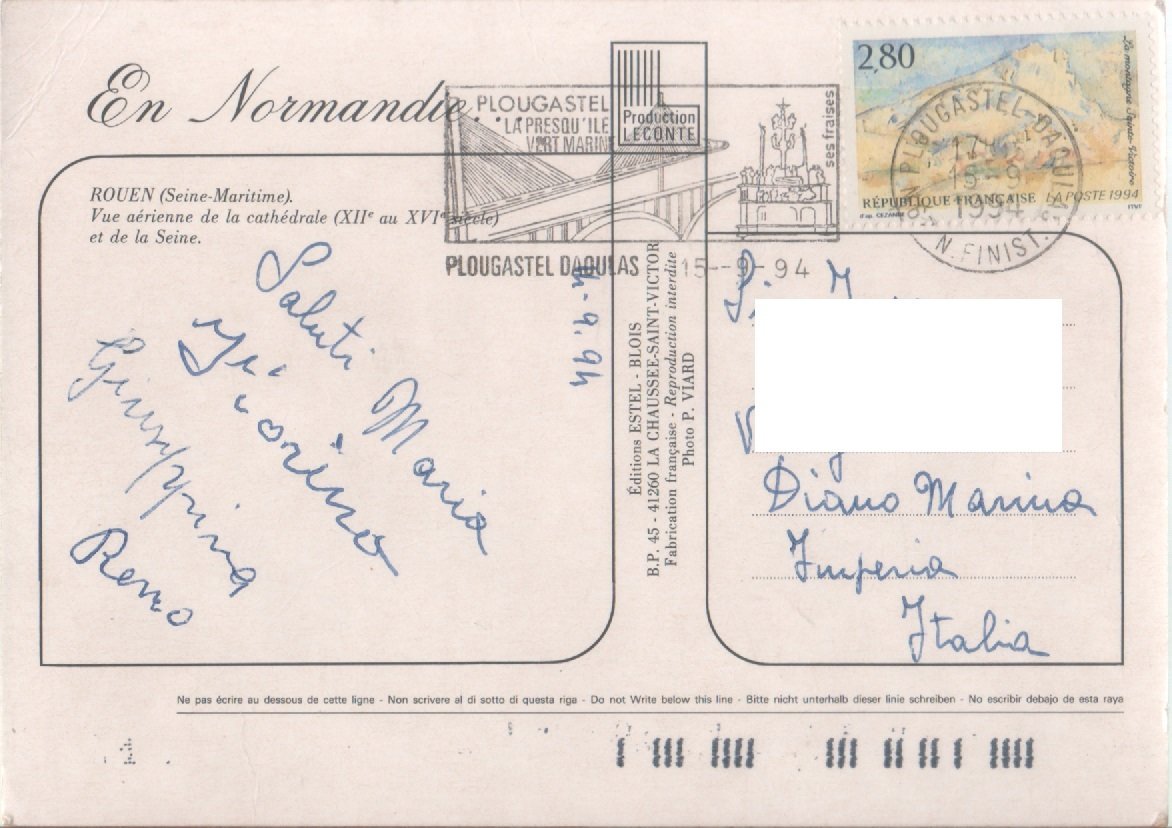 En Normandie...
ROUEN (Seine-Maritime).
Vue aérienne de la cathédrale (XIIe au XVIe siècle)
et de la Seine.
Saluti Maria
Giuseppina
Renzo
14.9.94
PLOUGASTEL
LA PRESQU'ILE
VERT MARINE
ses fraises
PLOUGASTEL DAOULAS
15--9-94
Production
LECONTE
Éditions ESTEL - BLOIS
B.P. 45 - 41260 LA CHAUSSEE-SAINT-VICTOR
Fabrication française - Reproduction interdite
Photo P. VIARD
2,80
La montagne Sainte-Victoire
RÉPUBLIQUE FRANÇAISE LA POSTE 1994
d'ap. CEZANNE
ITVF
PLOUGASTEL-DAOULAS
17H
15-9
1994
N. FINIST.
Diano Marina
Imperia
Italia
Ne pas écrire au dessous de cette ligne - Non scrivere al di sotto di questa riga - Do not Write below this line - Bitte nicht unterhalb dieser linie schreiben - No escribir debajo de esta raya
1